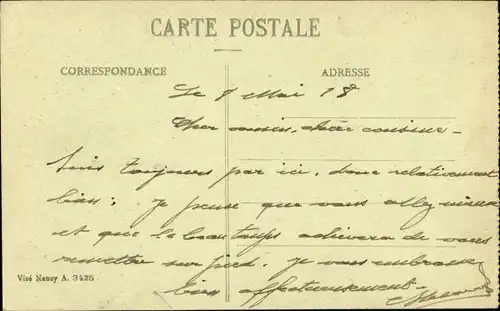 CARTE POSTALE
CORRESPONDANCE
ADRESSE
Le 8 Mai 18
Cher cousin, chère cousine -
Suis toujours par ici, donc relativement
bien; je pense que vous allez mieux
et que le beau temps achèvera de vous
remettre sur pied. Je vous embrasse
bien affectueusement -
Visé Nancy A. 3425